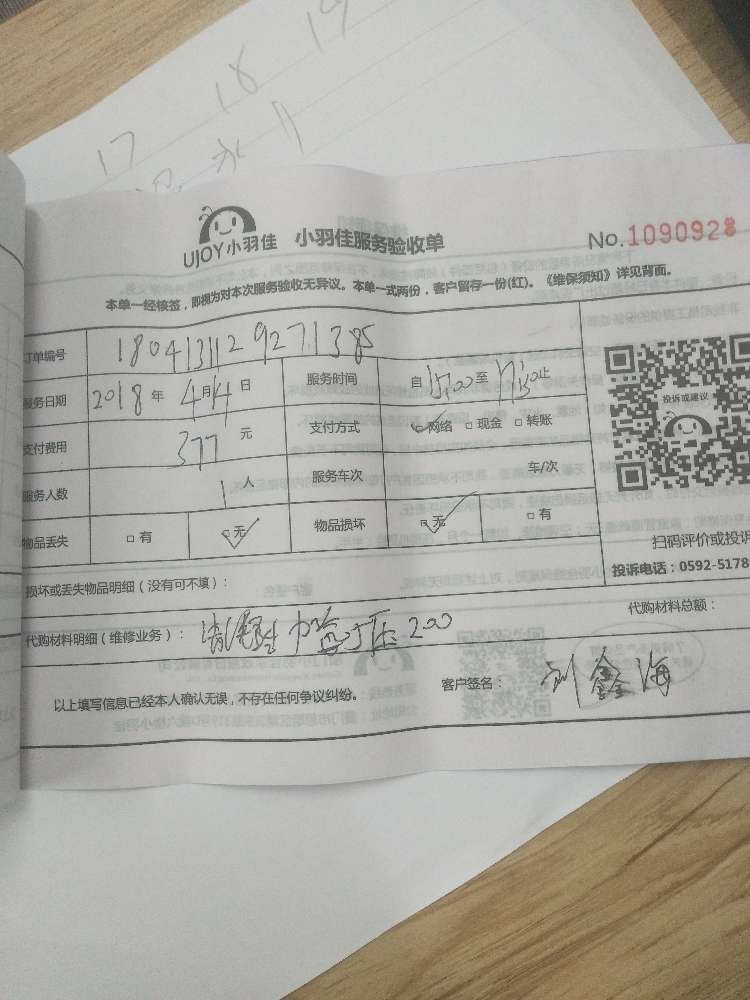 17 18 19
UJOY小羽佳 小羽佳服务验收单 No.1090928
本单一经核签，即视为对本次服务验收无异议。本单一式两份，客户留存一份(红)。《维保须知》详见背面。
订单编号 1804131129271385
服务日期 2018年4月14日 服务时间 自15:00至17:50止
支付费用 377元 支付方式 网络 现金 转账
服务人数 1人 服务车次 车/次
物品丢失 有 无 物品损坏 无 有
投诉或建议
扫码评价或投诉
投诉电话：0592-5178
损坏或丢失物品明细（没有可不填）：
代购材料明细（维修业务）： 200 代购材料总额：
以上填写信息已经本人确认无误，不存在任何争议纠纷。 客户签名： 刘鑫海